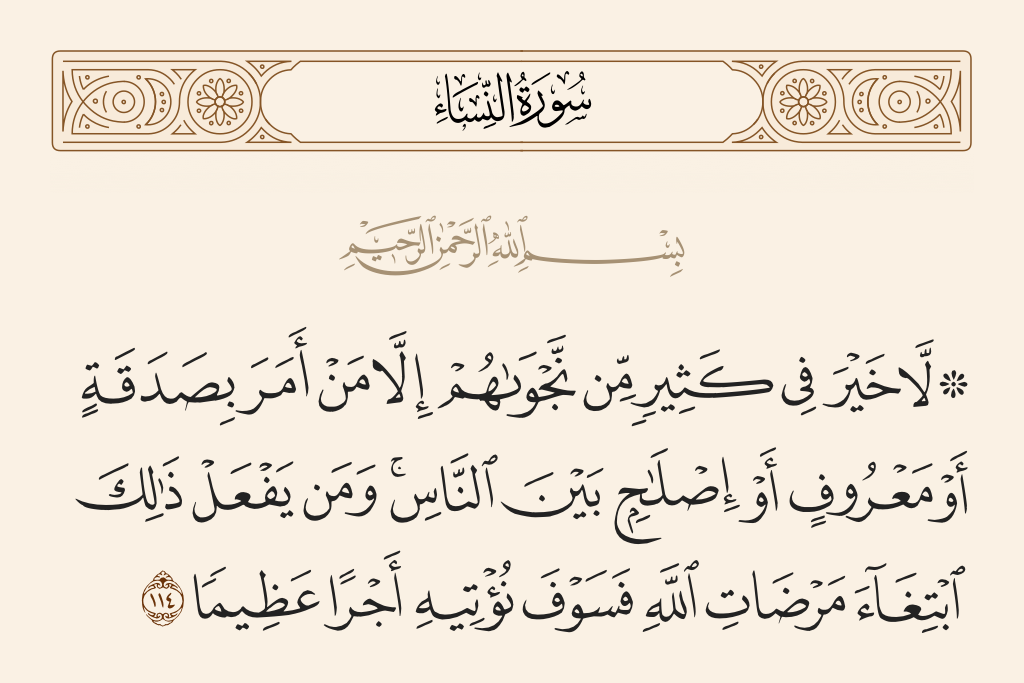 سُورَةُ النِّسَاءِ
بِسْمِ ٱللَّهِ ٱلرَّحْمَٰنِ ٱلرَّحِيمِ
۞ لَّا خَيْرَ فِى كَثِيرٍ مِّن نَّجْوَىٰهُمْ إِلَّا مَنْ أَمَرَ بِصَدَقَةٍ
أَوْ مَعْرُوفٍ أَوْ إِصْلَٰحٍۭ بَيْنَ ٱلنَّاسِ ۚ وَمَن يَفْعَلْ ذَٰلِكَ
ٱبْتِغَآءَ مَرْضَاتِ ٱللَّهِ فَسَوْفَ نُؤْتِيهِ أَجْرًا عَظِيمًا ١١٤